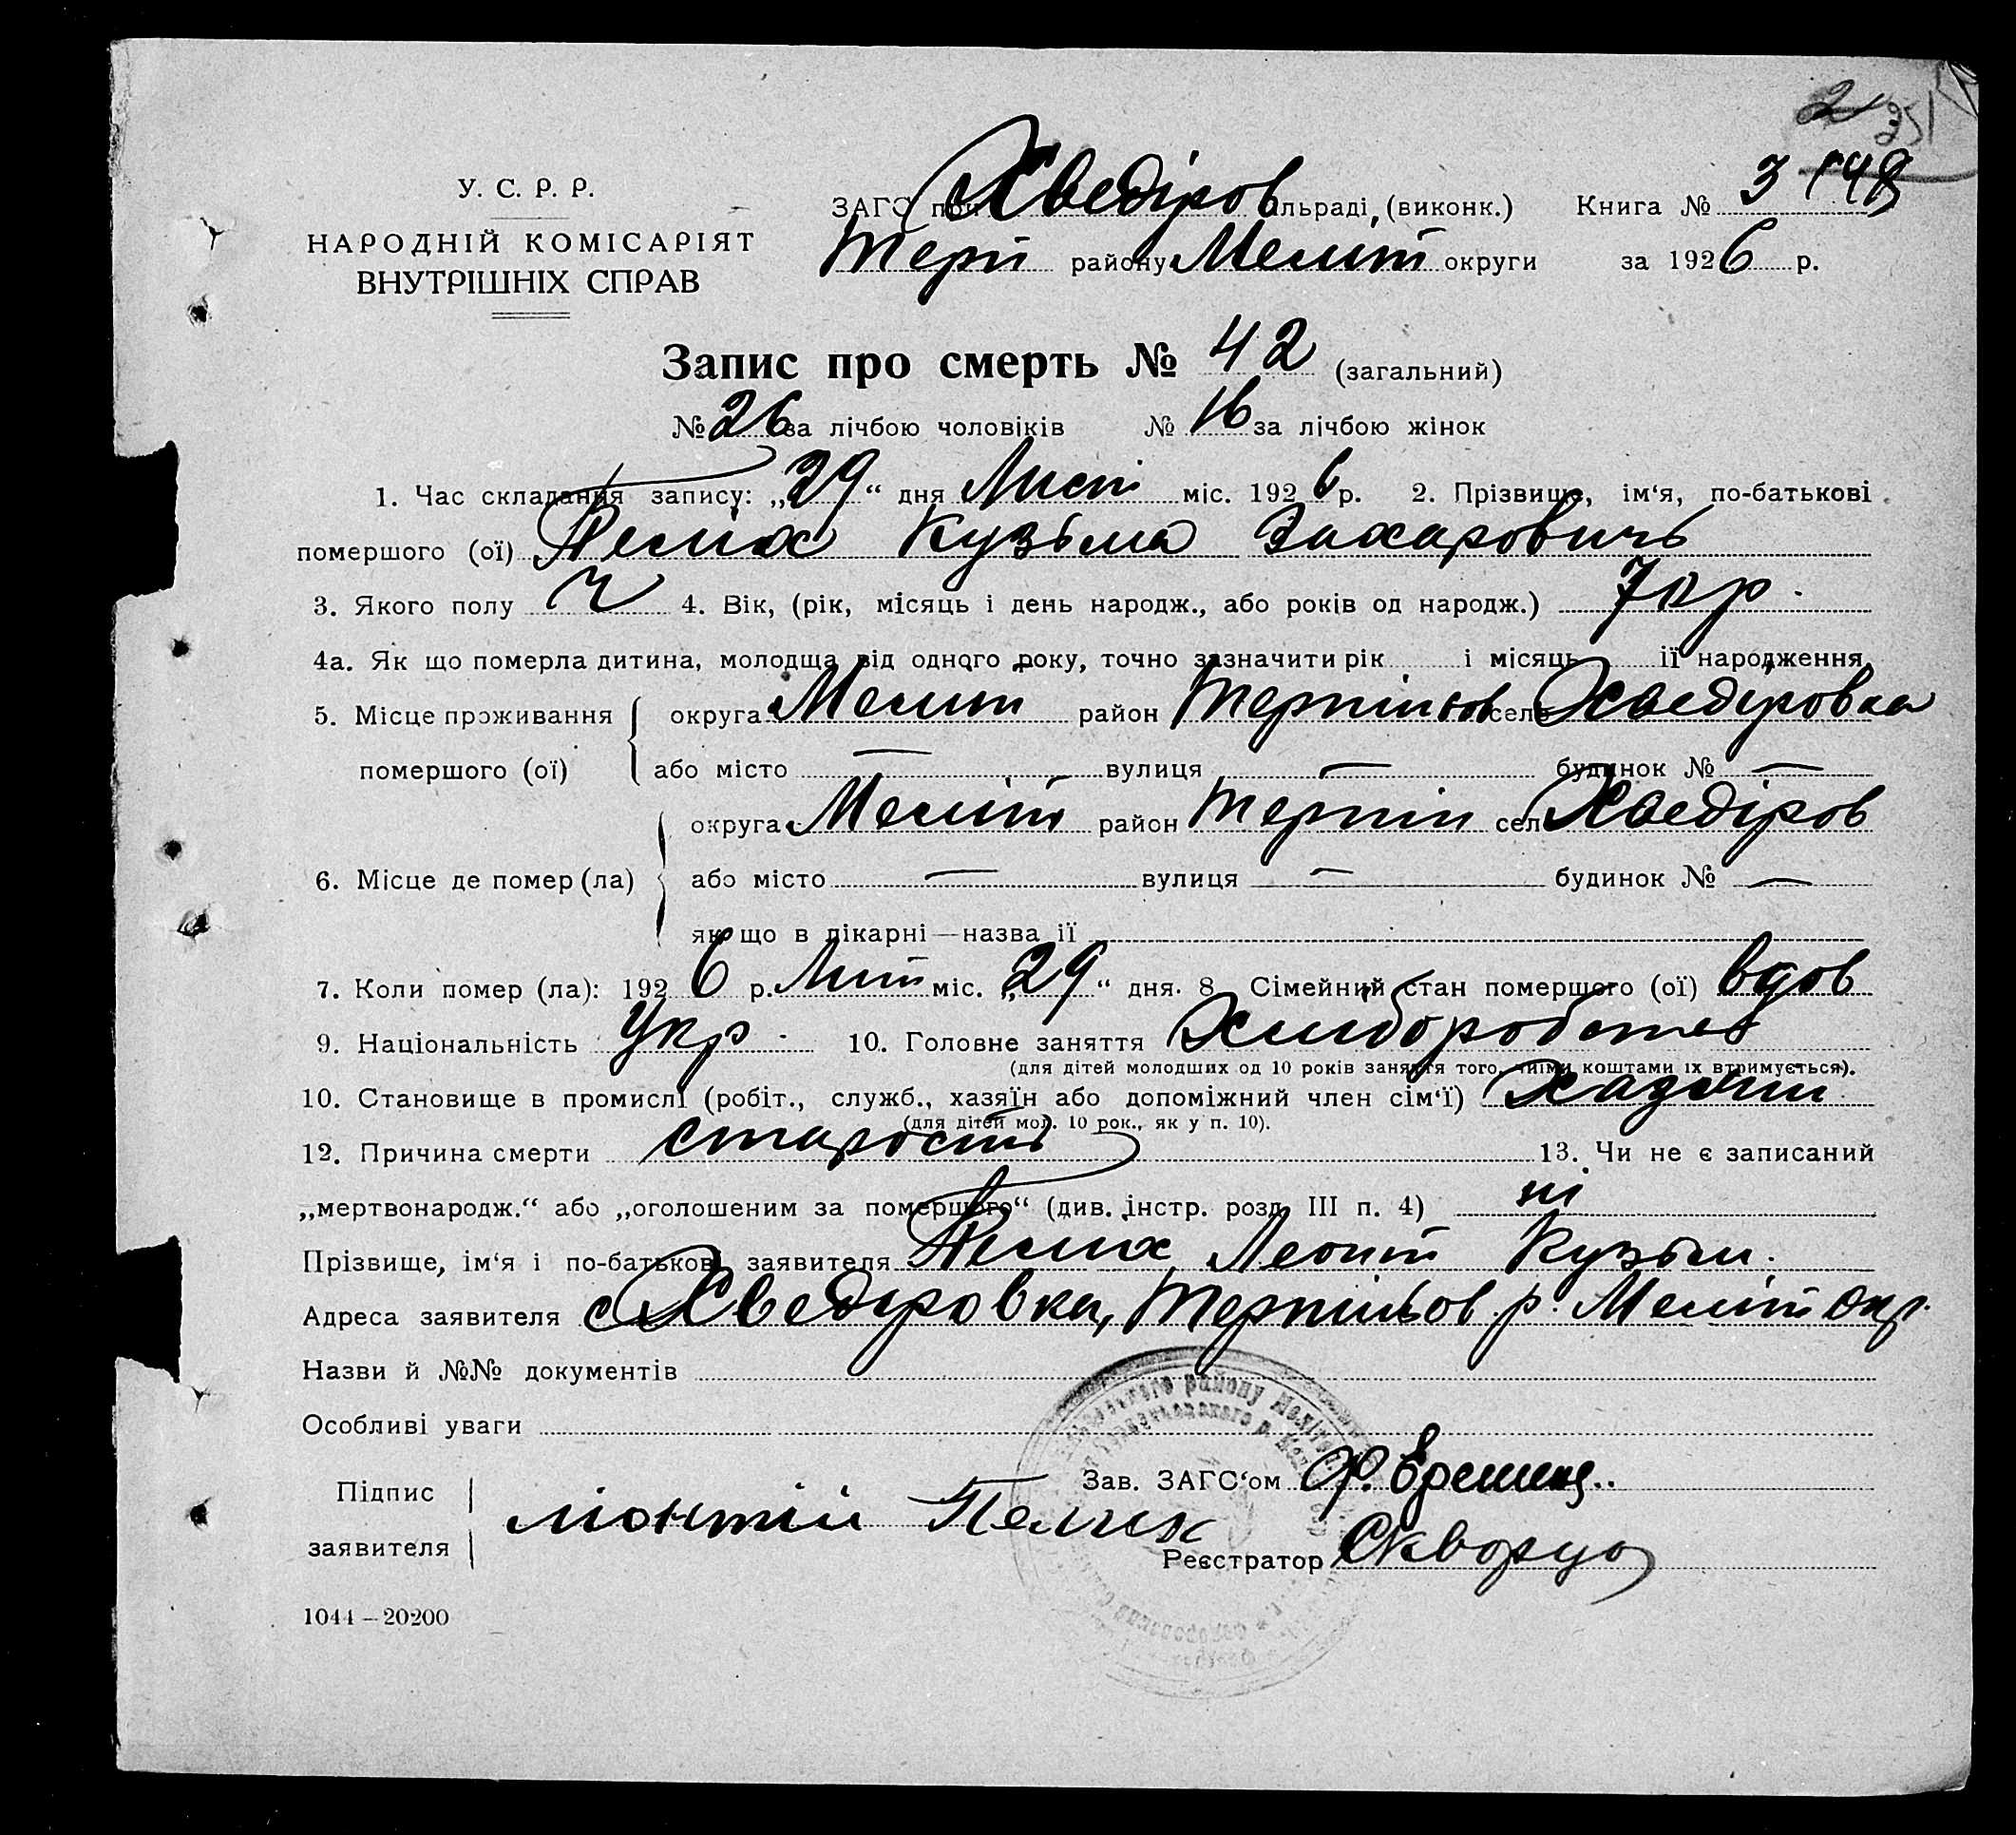 2 251
У. С. Р. Р.
НАРОДНІЙ КОМІСАРІЯТ
ВНУТРІШНІХ СПРАВ
ЗАГС при Хведіров сільраді, (виконк.) Книга № 3 148
Терп району Меліт округи за 1926 р.
Запис про смерть № 42 (загальний)
№ 26 за лічбою чоловіків № 16 за лічбою жінок
1. Час складання запису: „29“ дня Лист міс. 1926 р. 2. Прізвище, ім‘я, по-батькові
помершого (ої) Пелих Кузьма Захаровичь
3. Якого полу Ч 4. Вік, (рік, місяць і день народж., або років од народж.) 70 р.
4а. Як що померла дитина, молодща від одного року, точно зазначити рік і місяць ії народження
5. Місце проживання помершого (ої) округа Меліт район Терпіньов село Хведіровка
або місто — вулиця — будинок № —
6. Місце де помер (ла) округа Меліт район Терпін село Хведіров
або місто — вулиця — будинок № —
як що в лікарні—назва ії
7. Коли помер (ла): 1926 р. Лист міс. „29“ дня. 8. Сімейний стан помершого (ої) вдов
9. Національність Укр. 10. Головне заняття Хліборобство
(для дітей молодших од 10 років заняття того, чиїми коштами їх втримується).
10. Становище в промислі (робіт., служб., хазяїн або допоміжний член сім‘ї)
(для дітей мол. 10 рок., як у п. 10).
12. Причина смерти старость 13. Чи не є записаний
„мертвонародж.“ або „оголошеним за помершого“ (див. інстр. розд. III п. 4) ні
Прізвище, ім‘я і по-батькові заявителя Пелих Леонт Кузьм.
Адреса заявителя с Хведіровка, Терпіньов. р. Меліт окр.
Назви й №№ документів
Особливі уваги
Підпис заявителя Пелих
Зав. ЗАГС‘ом
Реєстратор Скворцо
1044—20200